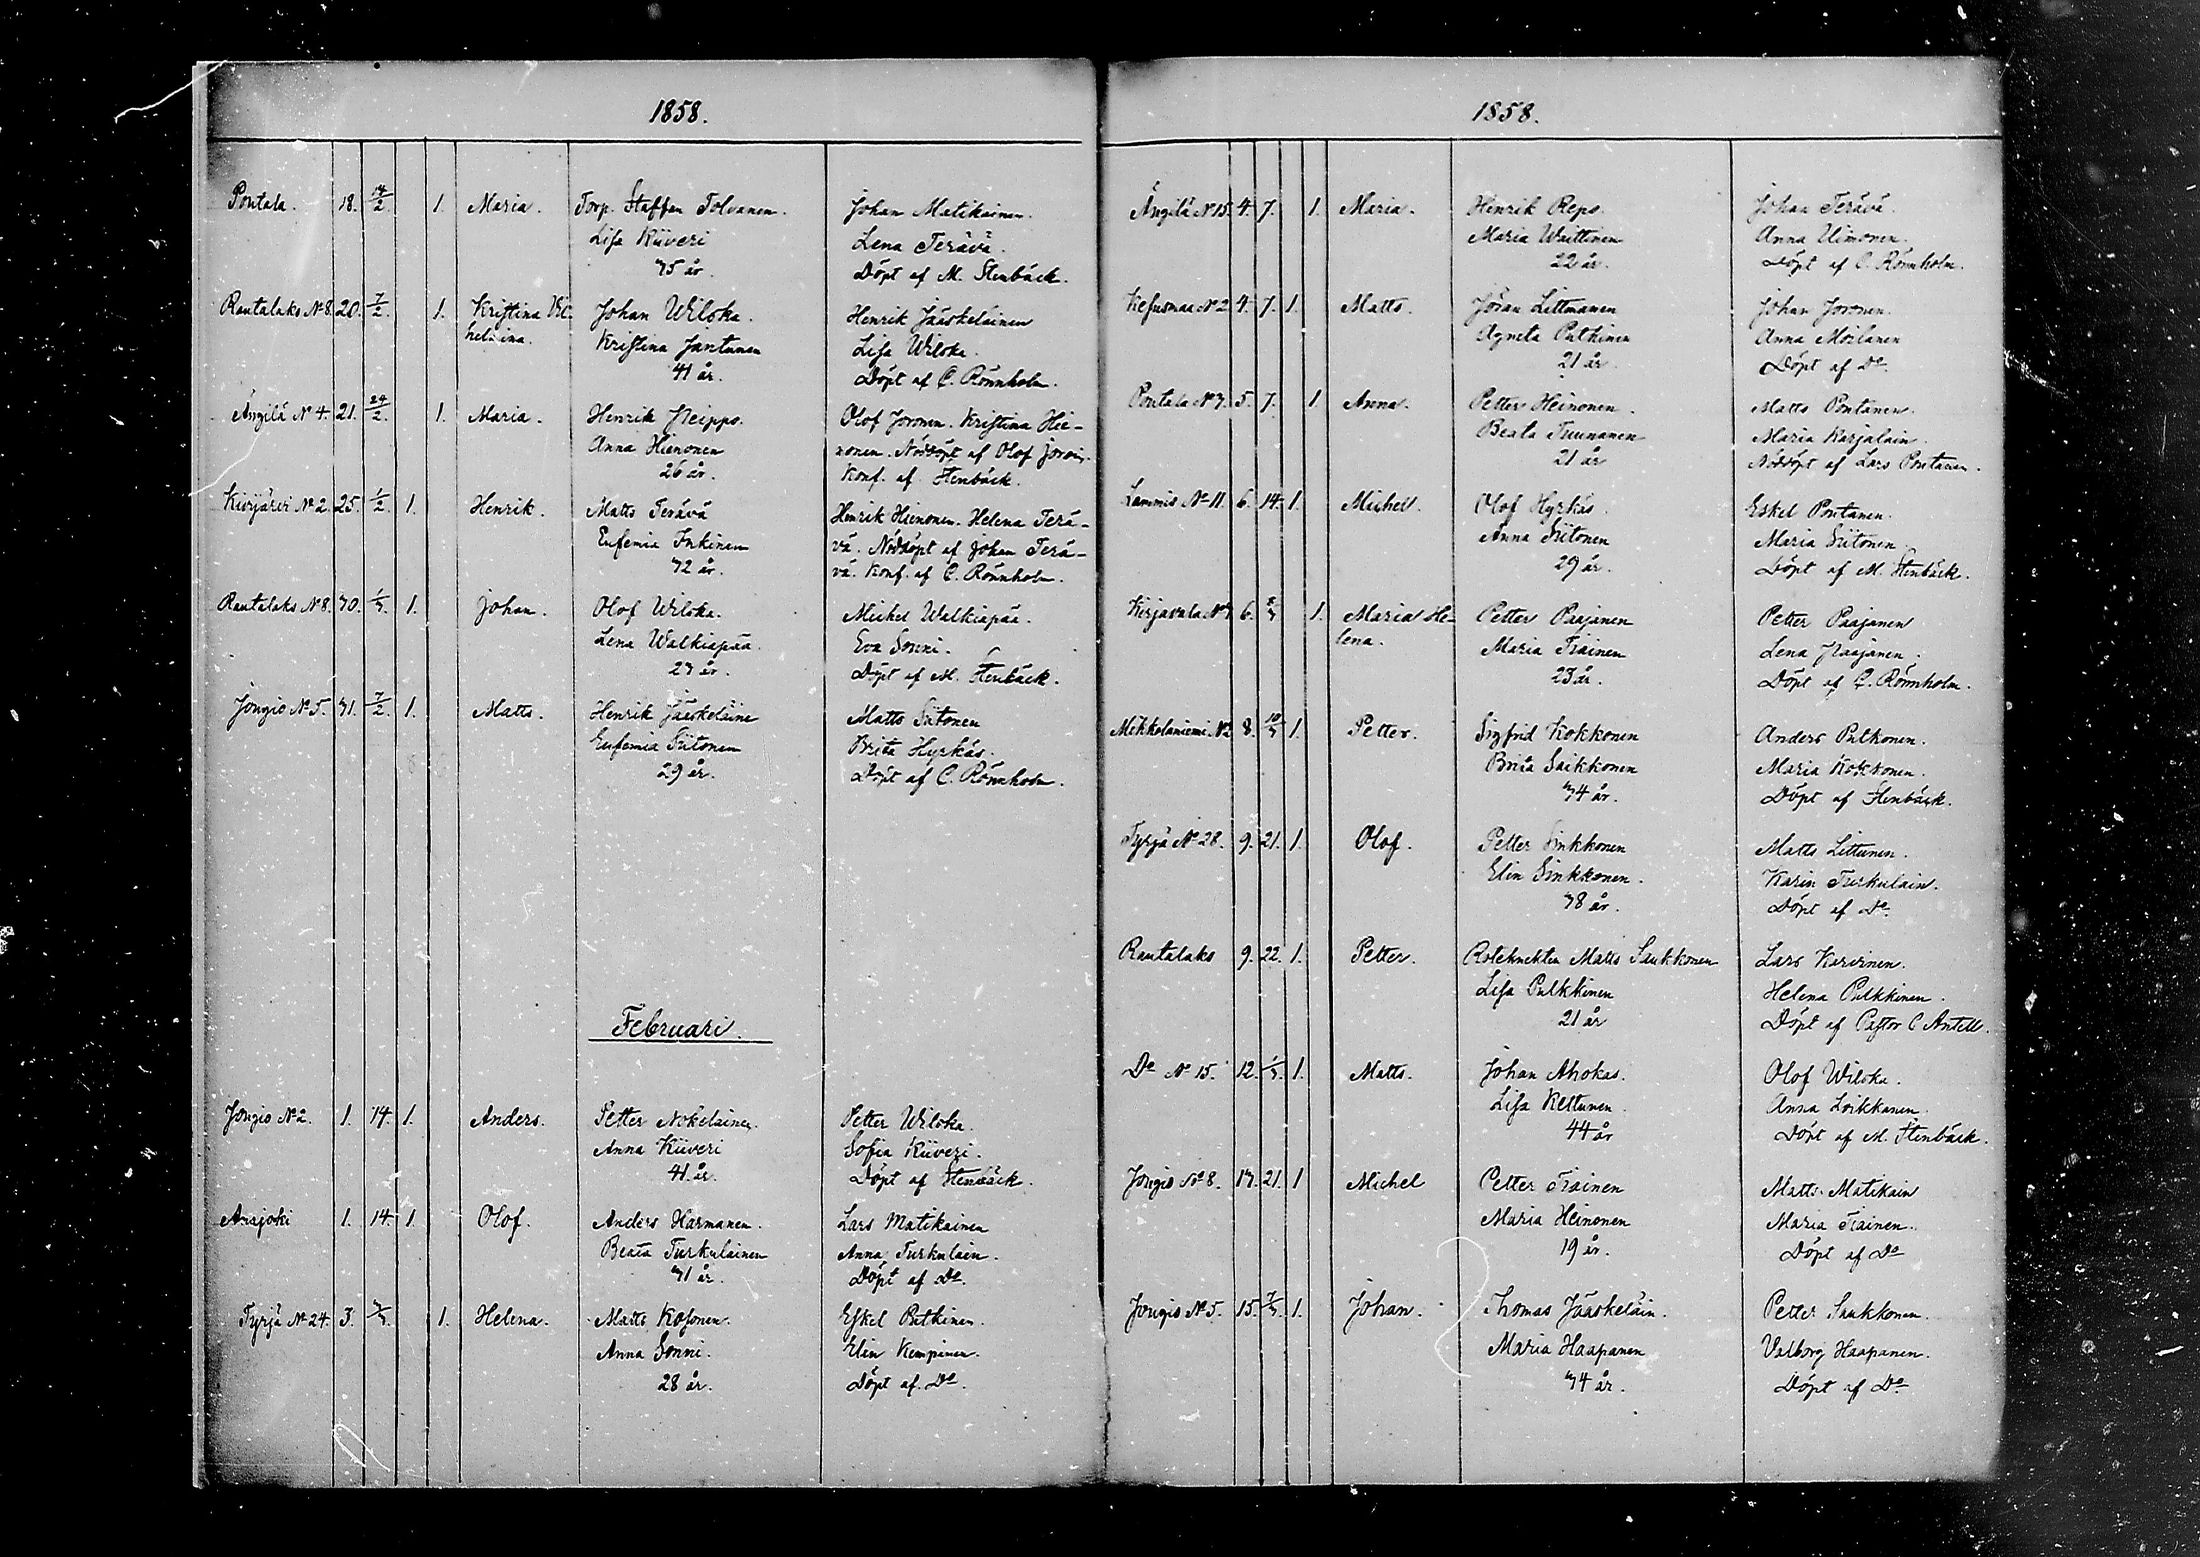 1858.
Pontala. 18. 14/2. 1. Maria. Torp. Staffan Tolvanen. Johan Matikainen.
Lisa Kiiveri Lena Terävä.
35 år. Döpt af M. Stenbäck.
Rautalaks No 8. 20. 7/2. 1. Kristina Vil- Johan Wiloka. Henrik Jääskeläinen
helmina. Kristina Jantunen Lisa Wiloka.
41 år. Döpt af C. Rönnholm.
Ängilä No 4. 21. 24/2. 1. Maria. Henrik Neippo. Olof Joronen. Kristina Hie-
Anna Hienonen nonen. Nöddöpt af Olof Joroin.
26 år. Konf. af Stenbäck.
Kirjärvi No 2. 25. 1/2. 1. Henrik. Matts Terävä Henrik Hienonen. Helena Terä-
Eufemia Inkinen vä. Nöddöpt af Johan Terä-
32 år. vä. Konf. af C. Rönnholm.
Rautalaks No 8. 30. 1/3. 1. Johan. Olof Wiloka. Michel Walkiapää.
Lena Walkiapää. Eva Sonni.
23 år. Döpt af M. Stenbäck.
Jongio No 5. 31. 7/2. 1. Matts. Henrik Jääskeläine Matts Siitonen
Eufemia Siitonen Brita Hyrkäs.
29 år. Döpt af C. Rönnholm.
Februari.
Jongio No 2. 1. 14. 1. Anders. Petter Nokelainen. Petter Wiloka.
Anna Kiiveri Sofia Kiiveri.
41 år. Döpt af Stenbäck.
Anajoki 1. 14. 1. Olof. Anders Harmanen. Lars Matikainen
Beata Turkulainen Anna Turkulain.
31 år. Döpt af Do.
Tyrjä No 24. 3. 1. Helena. Matts Kosonen. Eskel Putkinen.
Anna Sonni. Elin Kempinen.
28 år. Döpt af. Do.
1858.
Ängilä No 15. 4. 7. 1. Maria. Henrik Repo. Johan Terävä.
Maria Waittinen Anna Uimonen.
22 år. Döpt af C. Rönnholm.
Kesusmaa No 2. 4. 7. 1. Matts. Jöran Littmanen Johan Joronen.
Agneta Putkinen Anna Moilanen
21 år. Döpt af Do.
Pontala No 3. 5. 7. 1. Anna. Petter Heinonen. Matts Pontanen.
Beata Tuunanen Maria Karjalain.
21 år Nöddöpt af Lars Pontanen.
Lammis No 11. 6. 14. 1. Michel. Olof Hyrkäs. Eskel Pontanen.
Anna Siitonen Maria Siitonen.
29 år. Döpt af M. Stenbäck.
Kirjavala No 3 6. 1. Maria He- Petter Paajanen Petter Paajanen
lena. Maria Tiainen Lena Naajanen.
23 år. Döpt af C. Rönnholm.
Mikkolaniemi. No 2 8. 10/3 1. Petter. Sigfrid Kokkonen Anders Pulkonen.
Brita Saikkonen Maria Kokkonen.
34 år. Döpt af Stenbäck.
Tyrjä No 28. 9. 21. 1. Olof. Petter Sinkkonen Matts Littunen.
Elin Sinkkonen. Karin Turkulain.
38 år. Döpt af Do.
Rautalaks 9. 22. 1. Petter. Roteknekten Matts Saukkonen Lars Karvinen.
Lisa Pulkkinen Helena Pulkkinen.
21 år Döpt af Pastor C Antell.
Do No 15. 12. 1/3. 1. Matts. Johan Ahokas. Olof Wiloka.
Lisa Kettunen. Anna Loikkanen.
44 år Döpt af M. Stenbäck.
Jongio No 8. 13. 21. 1 Michel Petter Tiainen Matts Matikain
Maria Heinonen Maria Tiainen.
19 år. Döpt af Do
Jongio No 5. 15. 7/3. 1. Johan. Thomas Jääskeläin. Petter Saukkonen.
Maria Haapanen Valborg Haapanen.
34 år. Döpt af Do.